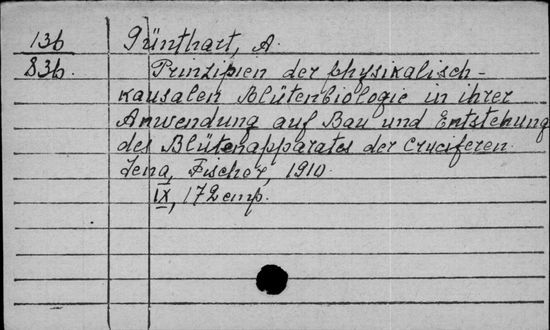 136 Günthart, A.
836. Prinzipien der physikalisch-
kausalen Blütenbiologie in ihrer
Anwendung auf Bau und Entstehung
des Blütenapparates der Cruciferen.
Jena, Fischer, 1910.
IX, 172 стр.